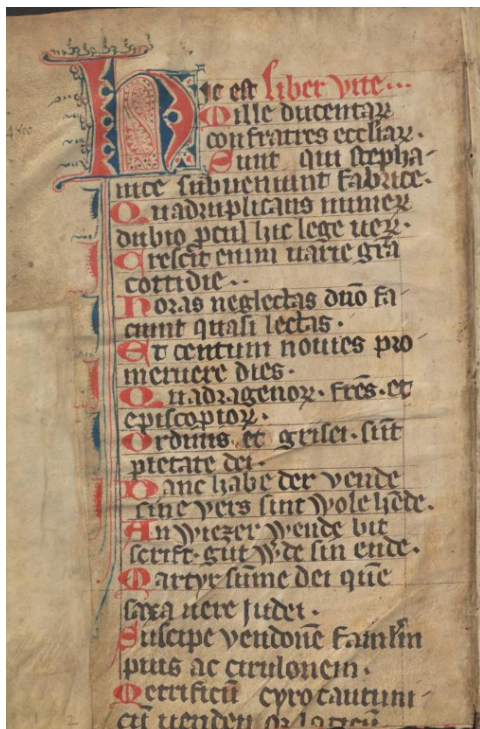 Hic est liber vite
Mille ducentaꝝ
confratres eccliaꝝ.
Sunt qui stepha-
nice subueniunt fabrice.
Quadruplicans numeꝝ
dubio pcul hic lege ueꝝ.
Crescit enim uarie gra
cottidie..
Horas neglectas dno fa-
ciunt quasi lectas.
Et centum nouies pro-
meruere dies.
Quadragenoꝝ. fres. et
episcopioꝝ.
Ordinis. et grisei. sūt
pietate dei.
Hanc habe der vende
sine vers sint wole hēde.
An wiezer wende bit
scrift. gut w̄de sin ende.
Martyr sūme dei quē
saxa uere Iudei.
Suscipe vendonē famlm
pius ac cirulonem.
Metrificū cyrotautuni
cū uenden